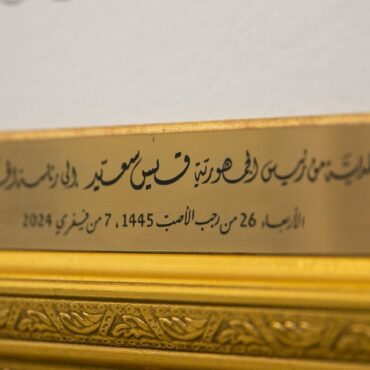 هديّة من رئيس الجمهوريّة قيس سعيّد إلى رئاسة
الأربعاء 26 من رجب الأصبّ 1445 ، 7 من فيفري 2024